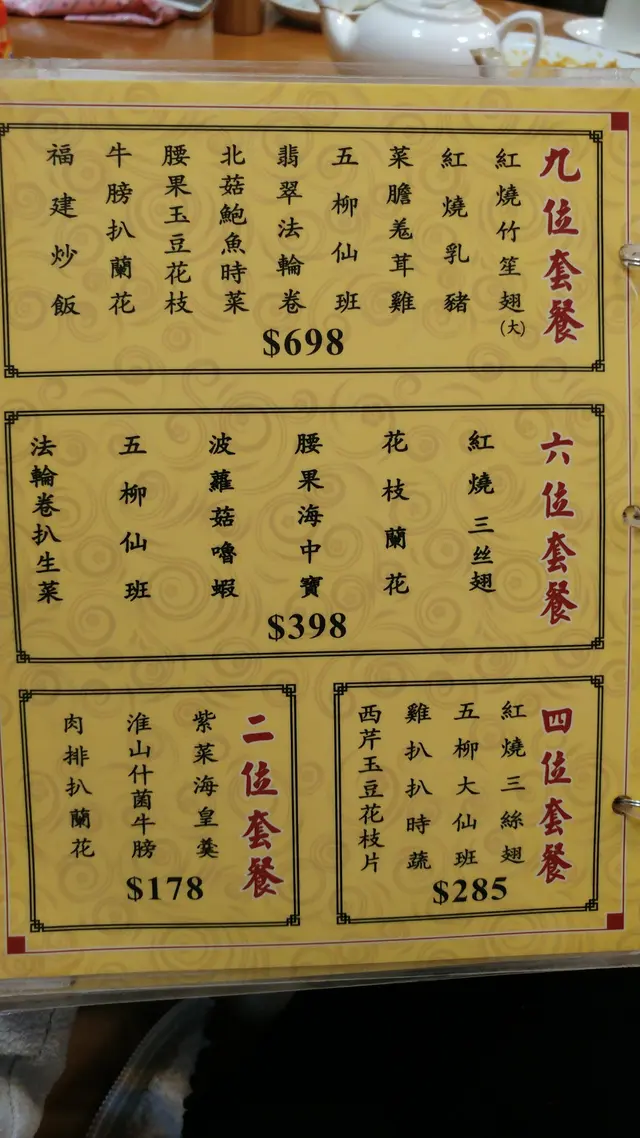 九位套餐
紅燒竹笙翅(大)
紅燒乳豬
菜膽羗茸雞
五柳仙班
翡翠法輪卷
北菇鮑魚時菜
腰果玉豆花枝
牛膀扒蘭花
福建炒飯
$698
六位套餐
紅燒三丝翅
花枝蘭花
腰果海中寶
波蘿菇嚕蝦
五柳仙班
法輪卷扒生菜
$398
二位套餐
紫菜海皇羹
淮山什菌牛膀
肉排扒蘭花
$178
四位套餐
紅燒三絲翅
五柳大仙班
雞扒扒時蔬
西芹玉豆花枝片
$285